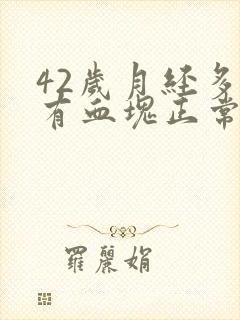 42歲月經多
有血塊正常
羅麗娟